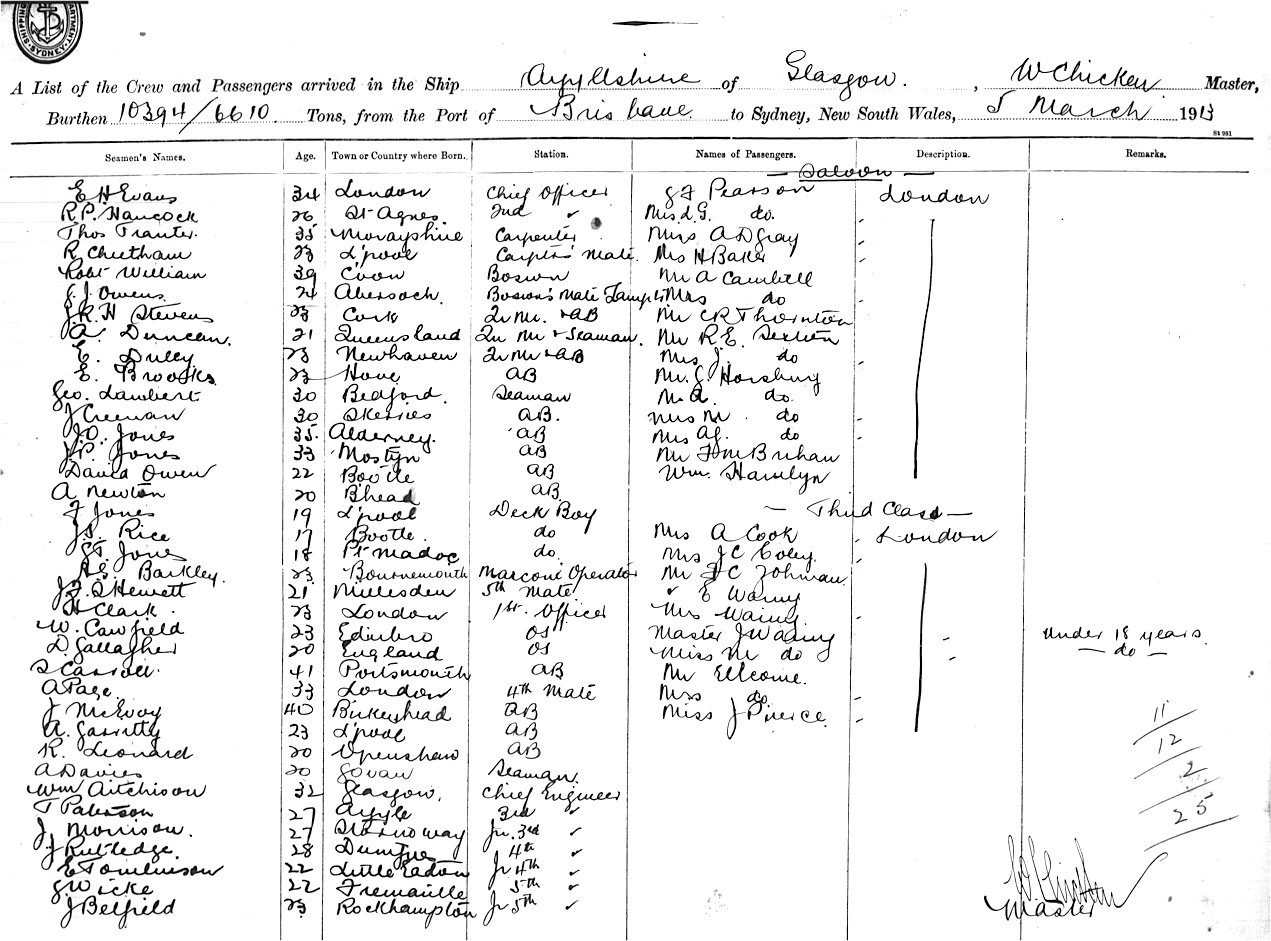 SHIPPING DEPARTMENT SYDNEY
A List of the Crew and Passengers arrived in the Ship Argyllshire of Glasgow. , W Chicken Master,
Burthen 10394/6610 Tons, from the Port of Brisbane to Sydney, New South Wales, 5 March 1913
St 951
Seamen's Names. Age. Town or Country where Born. Station. Names of Passengers. Description. Remarks.
— Saloon —
E H Evans 34 London Chief Officer Pearson London
R.P. Hancock 26 St Agnes. 2nd ✓ Mrs d.G. do.
Thos Tranter. 35 Morayshire Carpenter Miss A D Gray
R Cheetham 23 L'pool Carptrs Mate. Mrs H Baker
Robt William 39 Bosun Mr A Cambell
J. Owens 24 Abersoch. Bosun's Mate Lamp Mrs do
J.R.H Stevens 23 Cork Qr Mr. & AB Mr C R Thornton
A. Duncan. 21 Queensland Qr Mr & Seaman. Mr R.E.
E. Dulley 23 Newhaven Qr Mr & AB Mrs J. do
E. Brooks 23 Hove AB Mr. J. Horsburg
Geo. Lambert 30 Bedford. Seaman M A. do.
J Creenan 30 Skerries AB. Miss M do
J.O. Jones 35. Alderney. AB Miss Af. do
J.P. Jones 33 Mostyn AB Mr
David Owen 22 Bootle AB Wm. Hamlyn
A Newton 20 B'head AB.
F Jones 19 L'pool Deck Boy — Third Class —
J. Rice 17 Bootle. do Mrs A Cook London
Jones 18 Pt Madoc do. Mrs J C Coley.
Barkley. 23 Bournemouth Marconi Operator Mr F C Johman
J.F. S Hewett 21 Willesden 5th Mate ✓ E Waring
H Clark. 23 London 1st. Officer Mrs Waring.
W. Cawfield 23 Edinbro OS Master J Waring Under 18 years.
D. Gallagher 20 England OS Miss M do — do —
S Carroll. 41 Portsmouth AB Mr Ellcome.
A Page. 33 London 4th Mate Mrs do
J McEvoy 40 Birkenhead AB Miss J Pierce
A. Garritty 23 L'pool AB 11
R. Leonard 20 Openshaw AB 12
A Davies 20 Govan Seaman. 2
Wm Aitchison 32 Glasgow. Chief Engineer
T Paterson 27 Argyle 3rd ✓ 25
J Morrison. 27 Stornoway Jr. 3rd ✓
J Rutledge. 28 Dumfries 4th ✓
E Tomlinson 22 Little Eaton Jr 4th ✓
G Wicke 22 Fremantle 5th ✓
J Belfield 23 Rockhampton Jr 5th ✓
W Chicken
Master